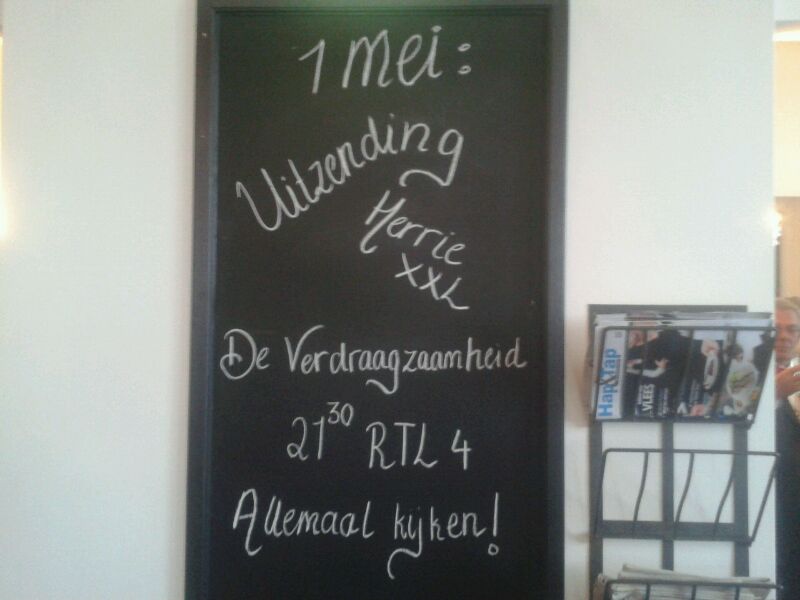 1 mei:
Uitzending
Herrie
XXL
De Verdraagzaamheid
21³⁰ RTL 4
Allemaal kijken!
Hap&Tap
VLEES